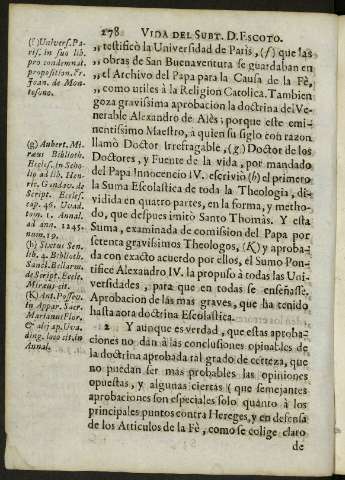 278 VIDA DEL SUBT. D. ESCOTO.
(f) Univers. Pa-
ris. in suo lib.
pro condemnat.
proposition. Fr.
Joan. de Mon-
tesono.
(g) Aubert. Mi-
reus Biblioth.
Eccles. in Scho-
lio ad lib. Hen-
ric. Gandav. de
Script. Eccles.
cap. 46. Uvad.
tom. 1. Annal.
ad ann. 1245.
num. 19.
(h) Sixtus Sen.
lib. 4. Biblioth.
Sanct. Bellarm.
de Script. Eccle.
Miræus cit.
(K) Ant. Possev.
in Appar. Sacr.
Marianus Flor.
& alij ap. Uva.
ding. loco cit. in
Annal.
„ testificò la Universidad de Paris, (f) que las
„ obras de San Buenaventura se guardaban en
„ el Archivo del Papa para la Causa de la Fè,
„ como utiles à la Religion Catolica. Tambien
goza gravissima aprobacion la doctrina del Ve-
nerable Alexandro de Alès; porque este emi-
nentissimo Maestro, a quien su siglo con razon
llamò Doctor Irrefragable, (g) Doctor de los
Doctores, y Fuente de la vida, por mandado
del Papa Innocencio IV. escriviò (h) el primero
la Suma Escolastica de toda la Theologia, di-
vidida en quatro partes, en la forma, y metho-
do, que despues imitò Santo Thomàs. Y esta
Suma, examinada de comision del Papa por
setenta gravissimos Theologos, (K) y aproba-
da con exacto acuerdo por ellos, el Sumo Pon-
tifice Alexandro IV. la propuso à todas las Uni-
versidades, para que en todas se enseñasse.
Aprobacion de las mas graves, que ha tenido
hasta aora doctrina Escolastica.
2 Y aunque es verdad, que estas aproba-
ciones no dàn à las conclusiones opinables de
la doctrina aprobada tal grado de certeza, que
no puedan ser mas probables las opiniones
opuestas, y algunas ciertas (que semejantes
aprobaciones son especiales solo quanto à los
principales puntos contra Hereges, y en defensa
de los Articulos de la Fè, como se colige claro
de